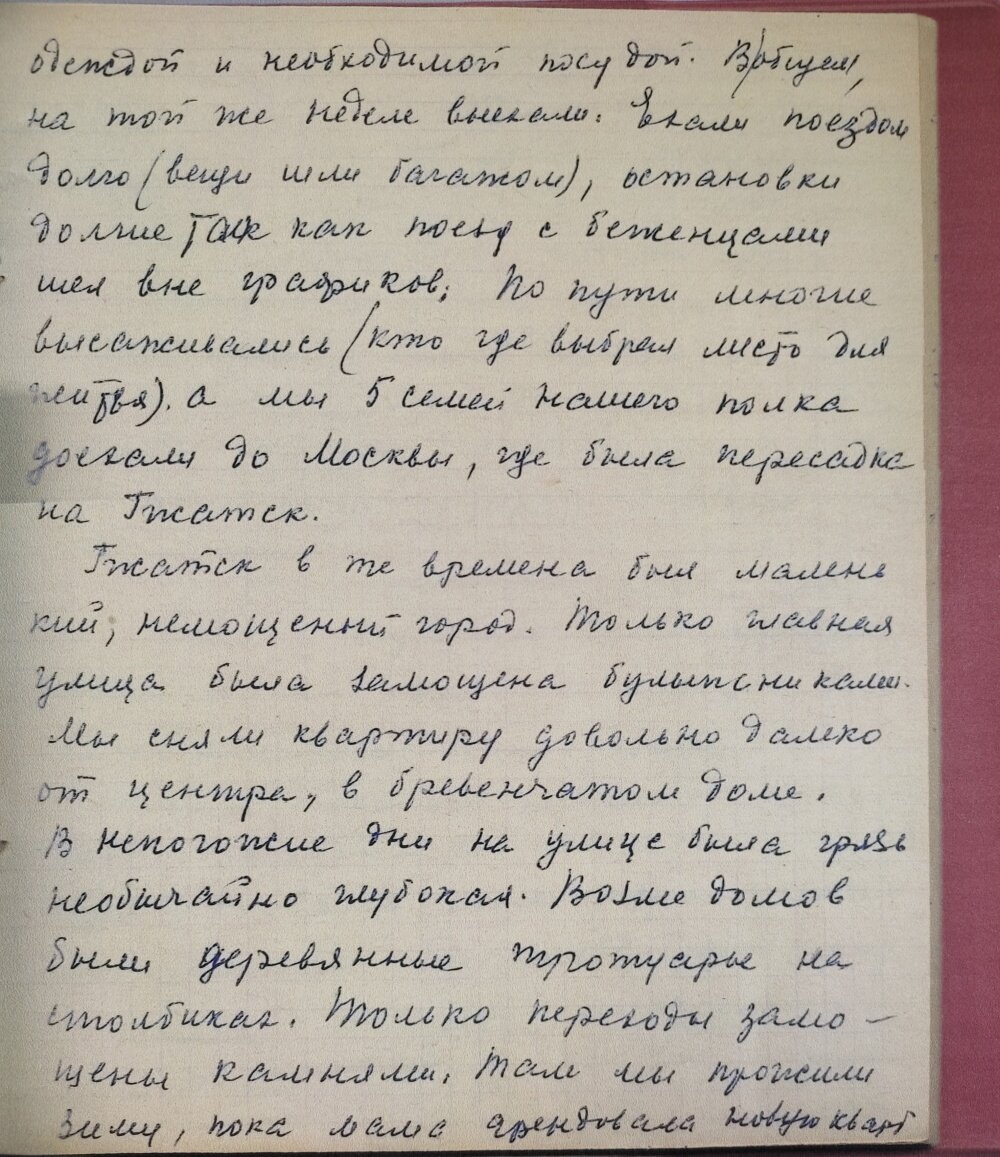 одеждой и необходимой посудой. Вобщем,
на той же неделе выехали. Ехали поездом
долго (вещи шли багажом), остановки
долгие так как поезд с беженцами
шел вне графиков. По пути многие
высаживались (кто где выбрал место для
житья). а мы 5 семей нашего полка
доехали до Москвы, где была пересадка
на Гжатск.
Гжатск в те времена был малень
кий, немощеный город. Только главная
улица была замощена булыжниками.
Мы сняли квартиру довольно далеко
от центра, в бревенчатом доме.
В непогожие дни на улице была грязь
необычайно глубокая. Возле домов
были деревянные тротуары на
столбиках. Только переходы замо-
щены камнями. Там мы прожили
зиму, пока мама арендовала новую кварт